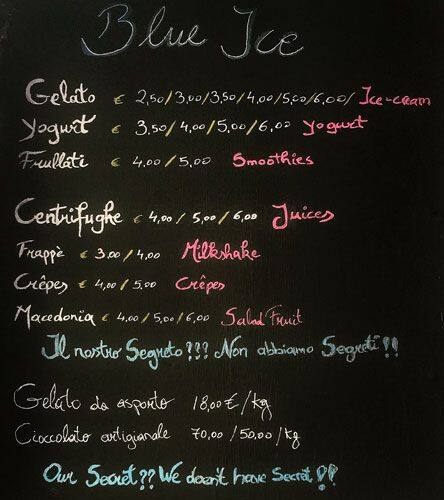 Blue Ice
Gelato € 2,50/3,00/3,50/4,00/5,00/6,00/ Ice-cream
Yogurt € 3,50/4,00/5,00/6,00 yogurt
Frullati € 4,00/5,00 Smoothies
Centrifughe € 4,00/5,00/6,00 Juices
Frappè € 3,00/4,00 Milkshake
Crêpes € 4,00/5,00 Crêpes
Macedonia € 4,00/5,00/6,00 Salad Fruit
Il nostro Segreto??? Non abbiamo Segreti!!
Gelato da asporto 18,00€/kg
Cioccolato artigianale 70,00/50,00/kg
Our Secret?? We doen't have Secret!!